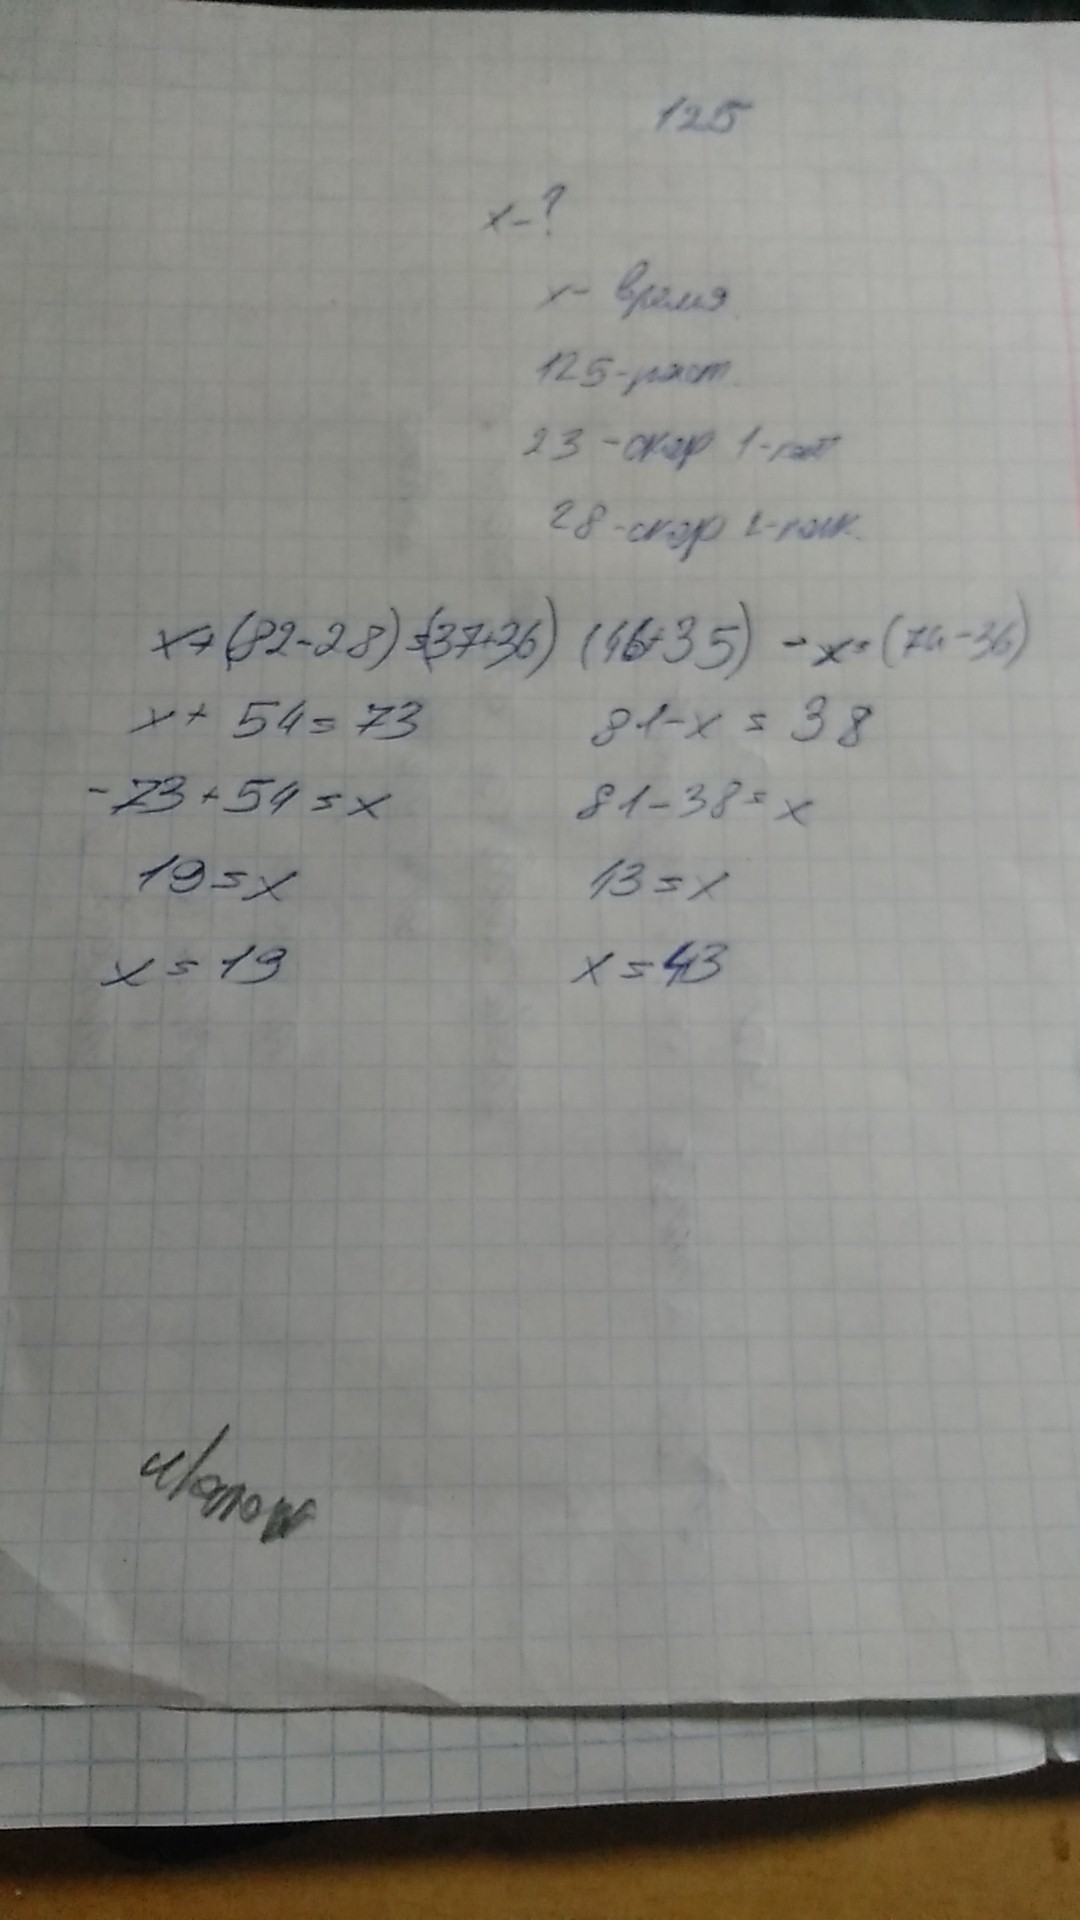 125
x-?
x- время
125-раст.
23-скор 1-
28-скор 2-
x+(82-28)=(37+36) (46+35) -x=(74-36)
x+ 54=73 81-x = 38
-73+54=x 81-38=x
19=x 13=x
x=19 x=43